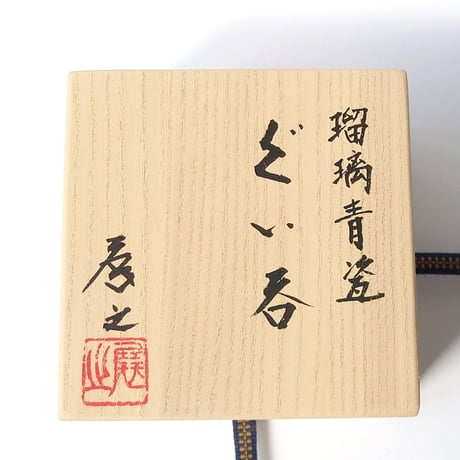 瑠璃青瓷
ぐい呑
彦之